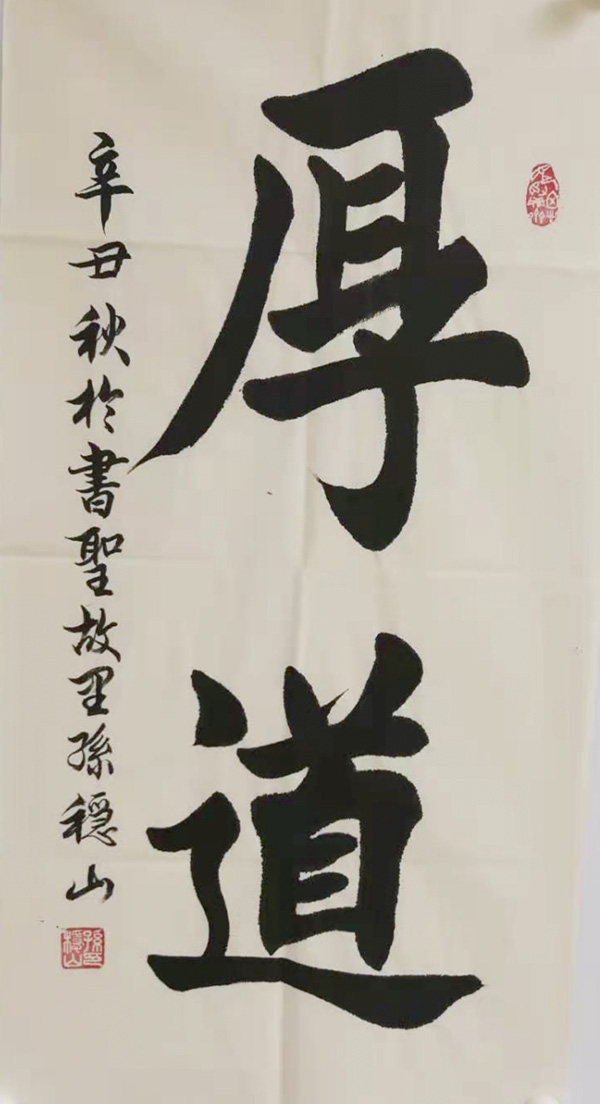 厚道
辛丑秋於書聖故里孫穩山
孫穩山印